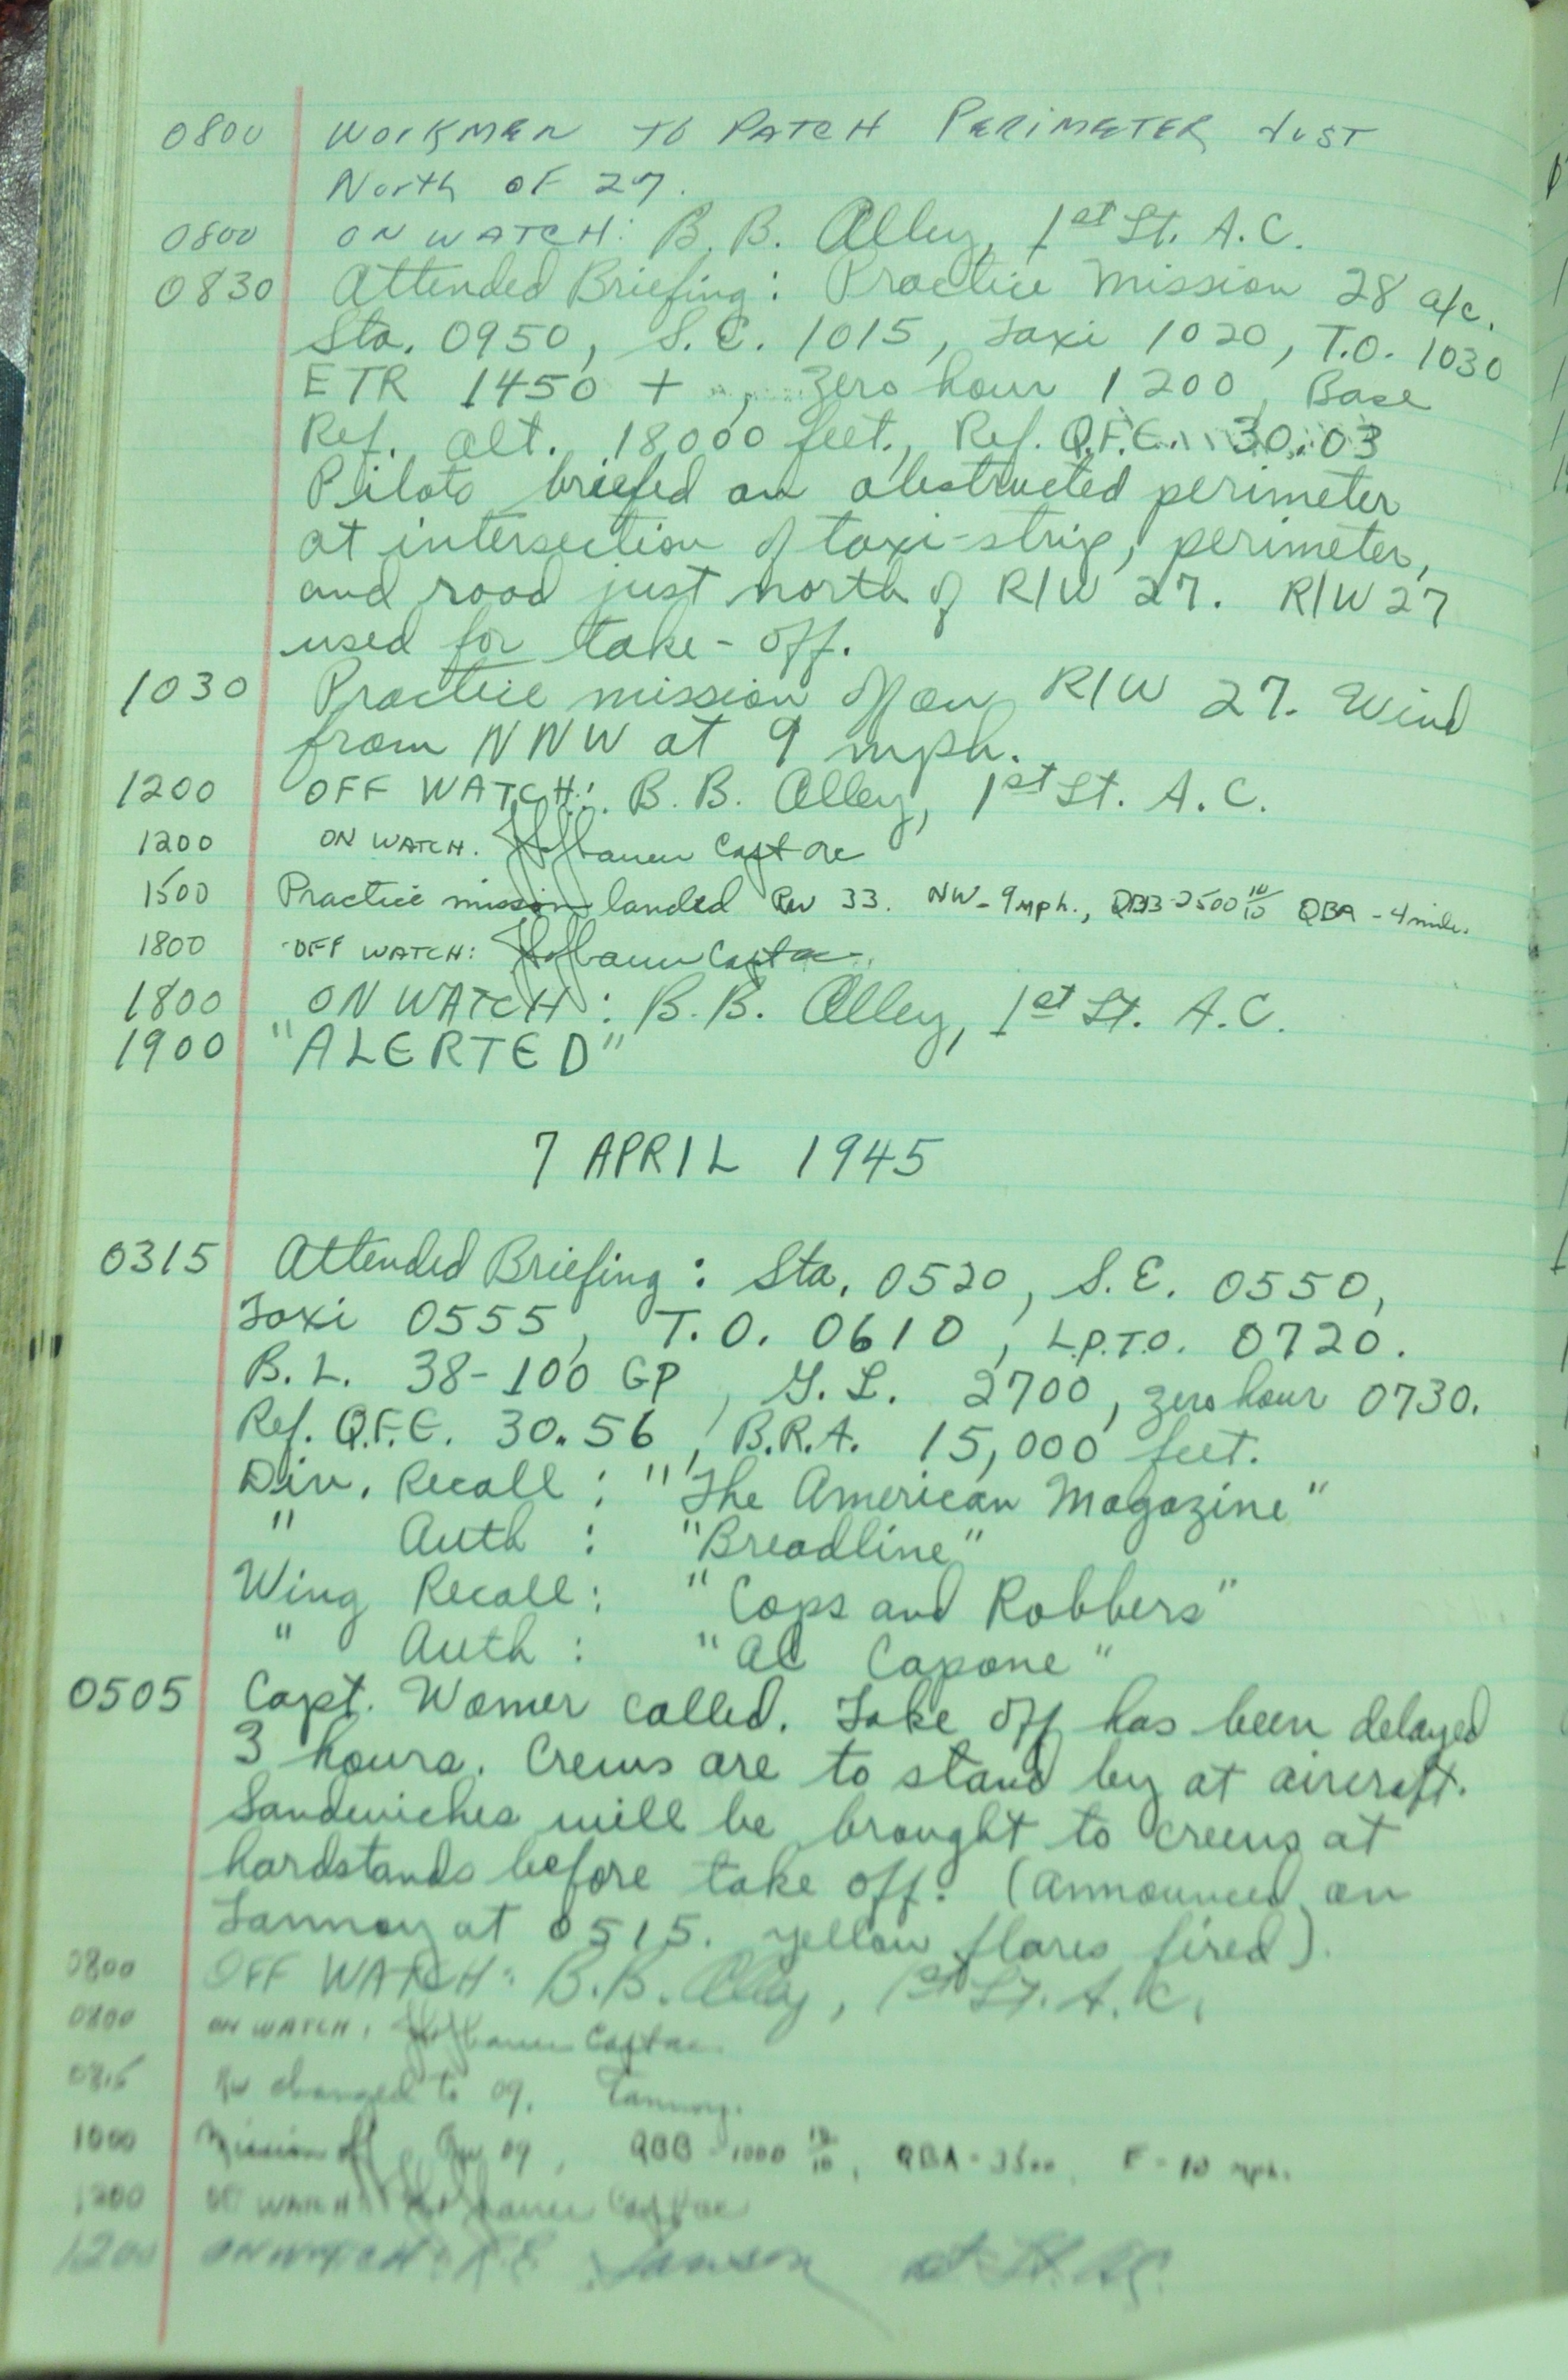 0800 WORKMEN TO PATCH PERIMETER JUST
North OF 27.
0800 ON WATCH: B. B. Alley, 1st Lt. A.C.
0830 Attended Briefing: Practice Mission 28 a/c.
Sta. 0950, S.E. 1015, Taxi 1020, T.O. 1030
ETR 1450 + , Zero hour 1200, Base
Ref. Alt. 18,000 feet., Ref. Q.F.E. 30.03
Pilots briefed on obstructed perimeter
at intersection of taxi-strip, perimeter,
and road just north of R/W 27. R/W 27
used for take-off.
1030 Practice mission off on R/W 27. Wind
from NNW at 9 mph.
1200 OFF WATCH: B. B. Alley, 1st Lt. A.C.
1200 ON WATCH. Capt ac
1500 Practice mission landed RW 33. NW-9mph., QBB-2500 10/10 QBA-4 miles.
1800 OFF WATCH: Capt ac
1800 ON WATCH: B.B. Alley, 1st Lt. A.C.
1900 "ALERTED"
7 APRIL 1945
0315 Attended Briefing: Sta. 0520, S.E. 0550,
Taxi 0555, T.O. 0610, L.P.T.O. 0720.
B.L. 38-100 GP, G.L. 2700, zero hour 0730.
Ref. Q.F.E. 30.56, B.R.A. 15,000 feet.
Div. Recall: "The American Magazine"
" Auth: "Breadline"
Wing Recall: "Cops and Robbers"
" Auth: "Al Capone"
0505 Capt. Womer called. Take off has been delayed
3 hours. Crews are to stand by at aircraft.
Sandwiches will be brought to crews at
hardstands before take off. (Announced on
Tannoy at 0515. Yellow flares fired).
0800 OFF WATCH: B.B. Alley, 1st Lt. A.C.
0800 ON WATCH: Capt ac
0815 RW changed to 09. Tannoy.
1000 Mission off RW 09, QBB-1000 10/10, QBA-3500, E-10 mph.
1200 OFF WATCH: Capt ac
1200 ON WATCH: 1st Lt. AC.